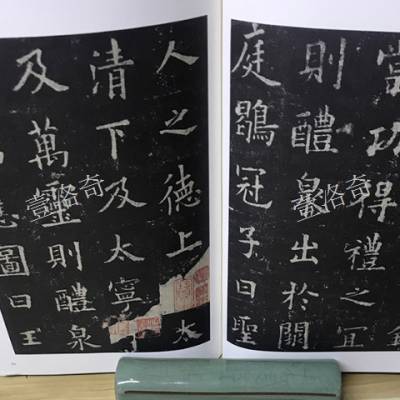 當功得禮之宜
則醴泉出於闕
庭鶡冠子曰聖
人之德上太
清下及太寧
及萬靈則醴泉
應圖曰王
壹洛奇
洛奇